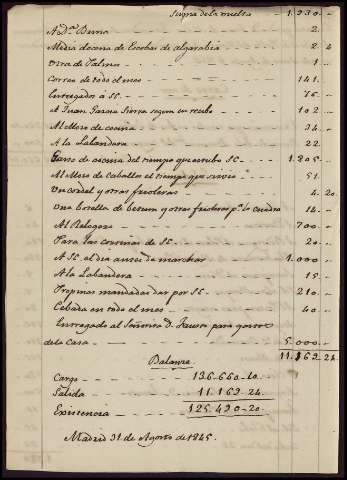 Suma de la vuelta 1.930..
A Dª Bruna 2..
Media docena de Escobas de algarabia 2..4
Otra de Palma 1..
Correo de todo el mes 141..
Entregados á SE. 76..
al Juan Garcia segun su recibo 102..
Al Mozo de cocina 34..
A la Labandera 22..
Gasto de mesa del tiempo que estubo SE. 1.805..
Al Mozo de caballos el tiempo que sirvió 51..
Un cordel y otras frioleras 4..20
Una botella de betun y otras frioleras pª la cuadra 14..
Al Relogero 700..
Para las cortinas de SE. 20..
A SE. el dia antes de marchar 1.000..
A la Labandera 15..
Propinas mandadas dar por SE. 210..
Cebada en todo el mes 40..
Entregado al Señorito D. Fausto para gastos
de la Casa 5.000..
11.169..24
Balanze
Cargo 136.660..10
Salida 11.169..24
Existencia 125.490..20
Madrid 31 de Agosto de 1845.